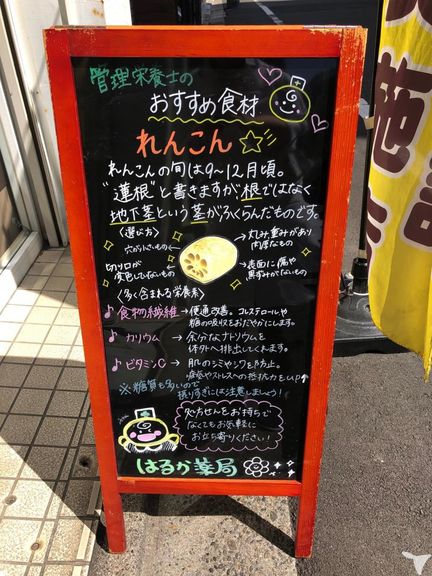 管理栄養士の
おすすめ食材
れんこん☆
れんこんの旬は9〜12月頃。
"蓮根"と書きますが、根ではなく
地下茎という茎がふくらんだものです。
〈選び方〉
穴が小さいもの
切り口が
変色していないもの
丸み重みがあり
肉厚なもの
表面に傷や
黒ずみがないもの
〈多く含まれる栄養素〉
♪食物繊維→便通改善。コレステロールや
糖の吸収をおだやかにします。
♪カリウム→余分なナトリウムを
体外へ排出してくれます。
♪ビタミンC→肌のシミやシワを防止。
病気やストレスへの抵抗力をUP↑
※糖質も多いので
摂りすぎには注意しましょう!
処方せんをお持ちで
なくてもお気軽に
お立ち寄りください!
はるか薬局